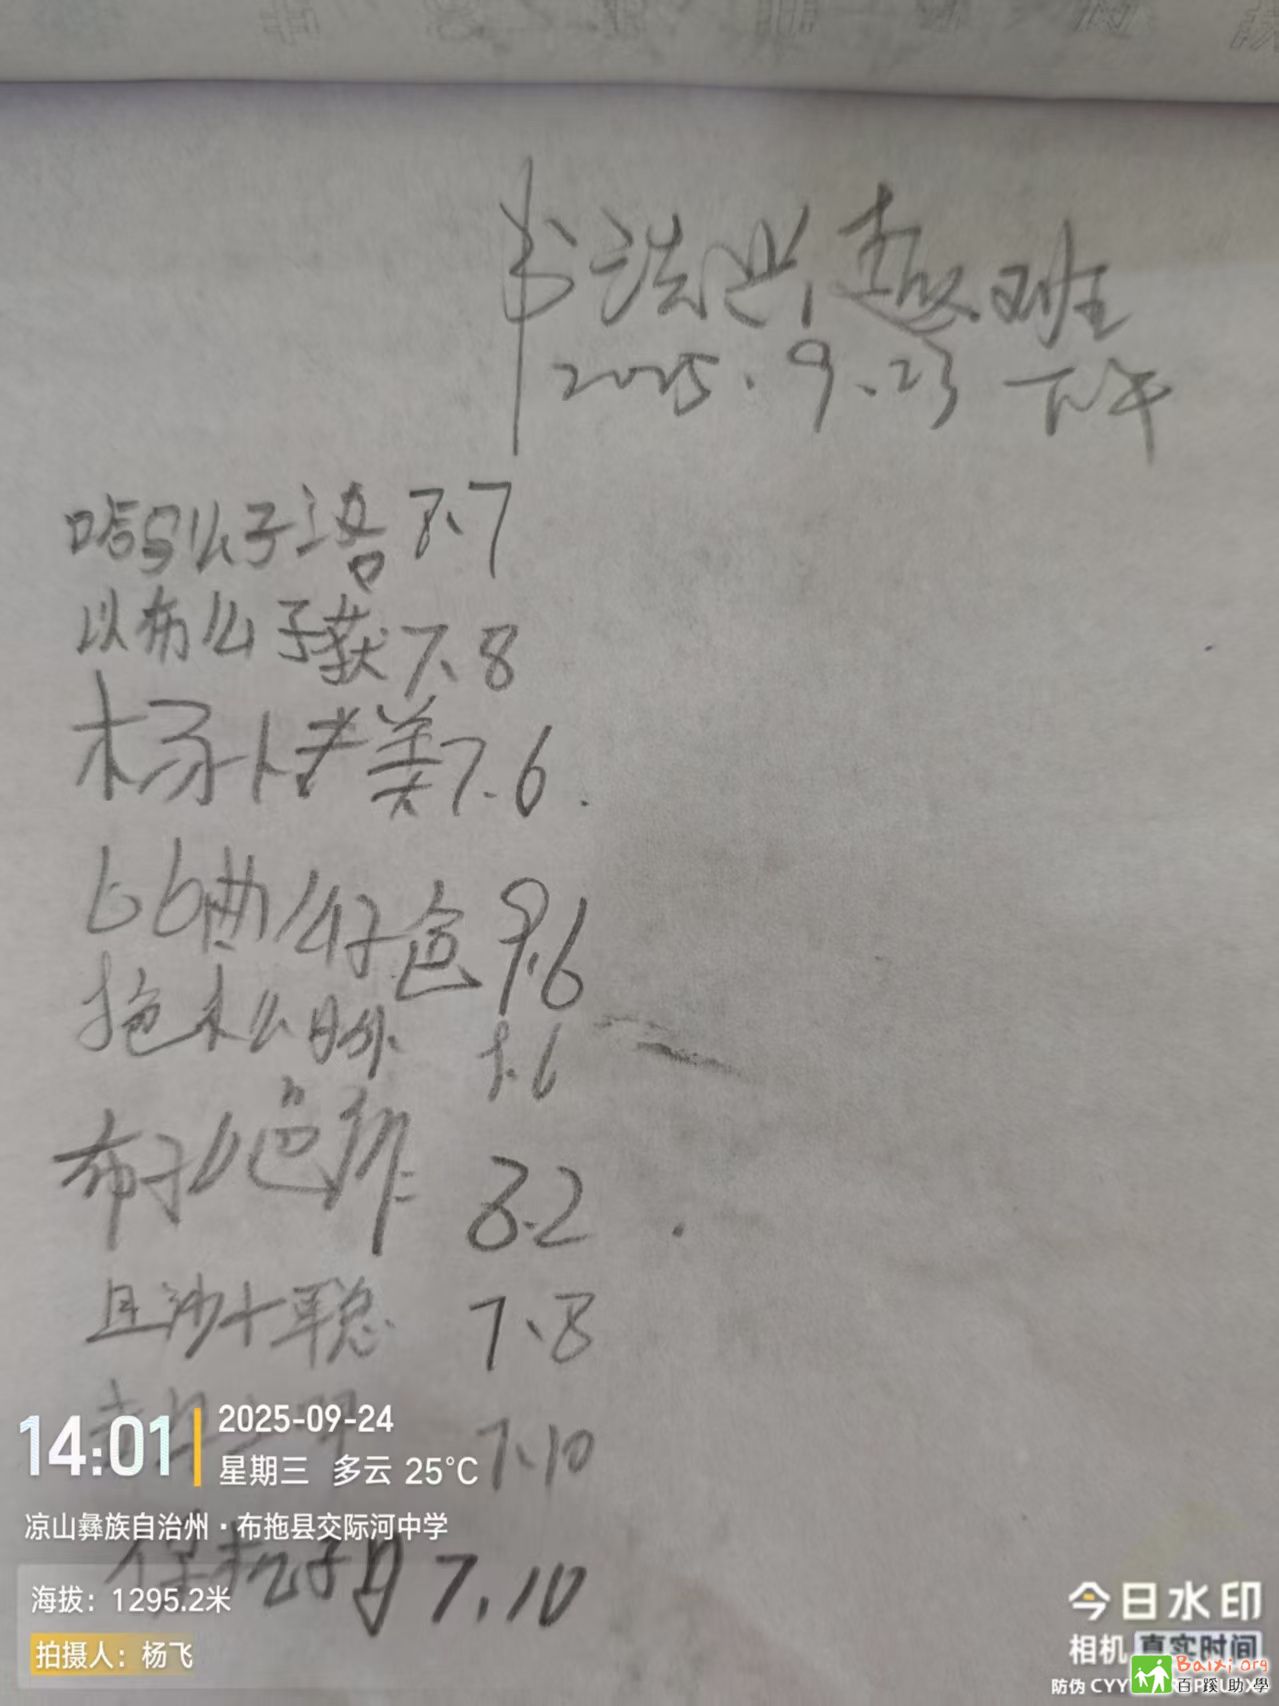 书法兴趣班
2025.9.23 下午
哈马么子洛 7.7
以布么子获 7.8
杨 美 7.6
么子色 9.6
拖木么 7.6
布子么色作 8.2
且沙十聪 7.8
7.10
么子 7.10
14:01
2025-09-24
星期三 多云 25°C
凉山彝族自治州·布拖县交际河中学
海拔：1295.2米
拍摄人：杨飞
今日水印
相机 真实时间
防伪 CYY
Baixi.org
百蹊助學